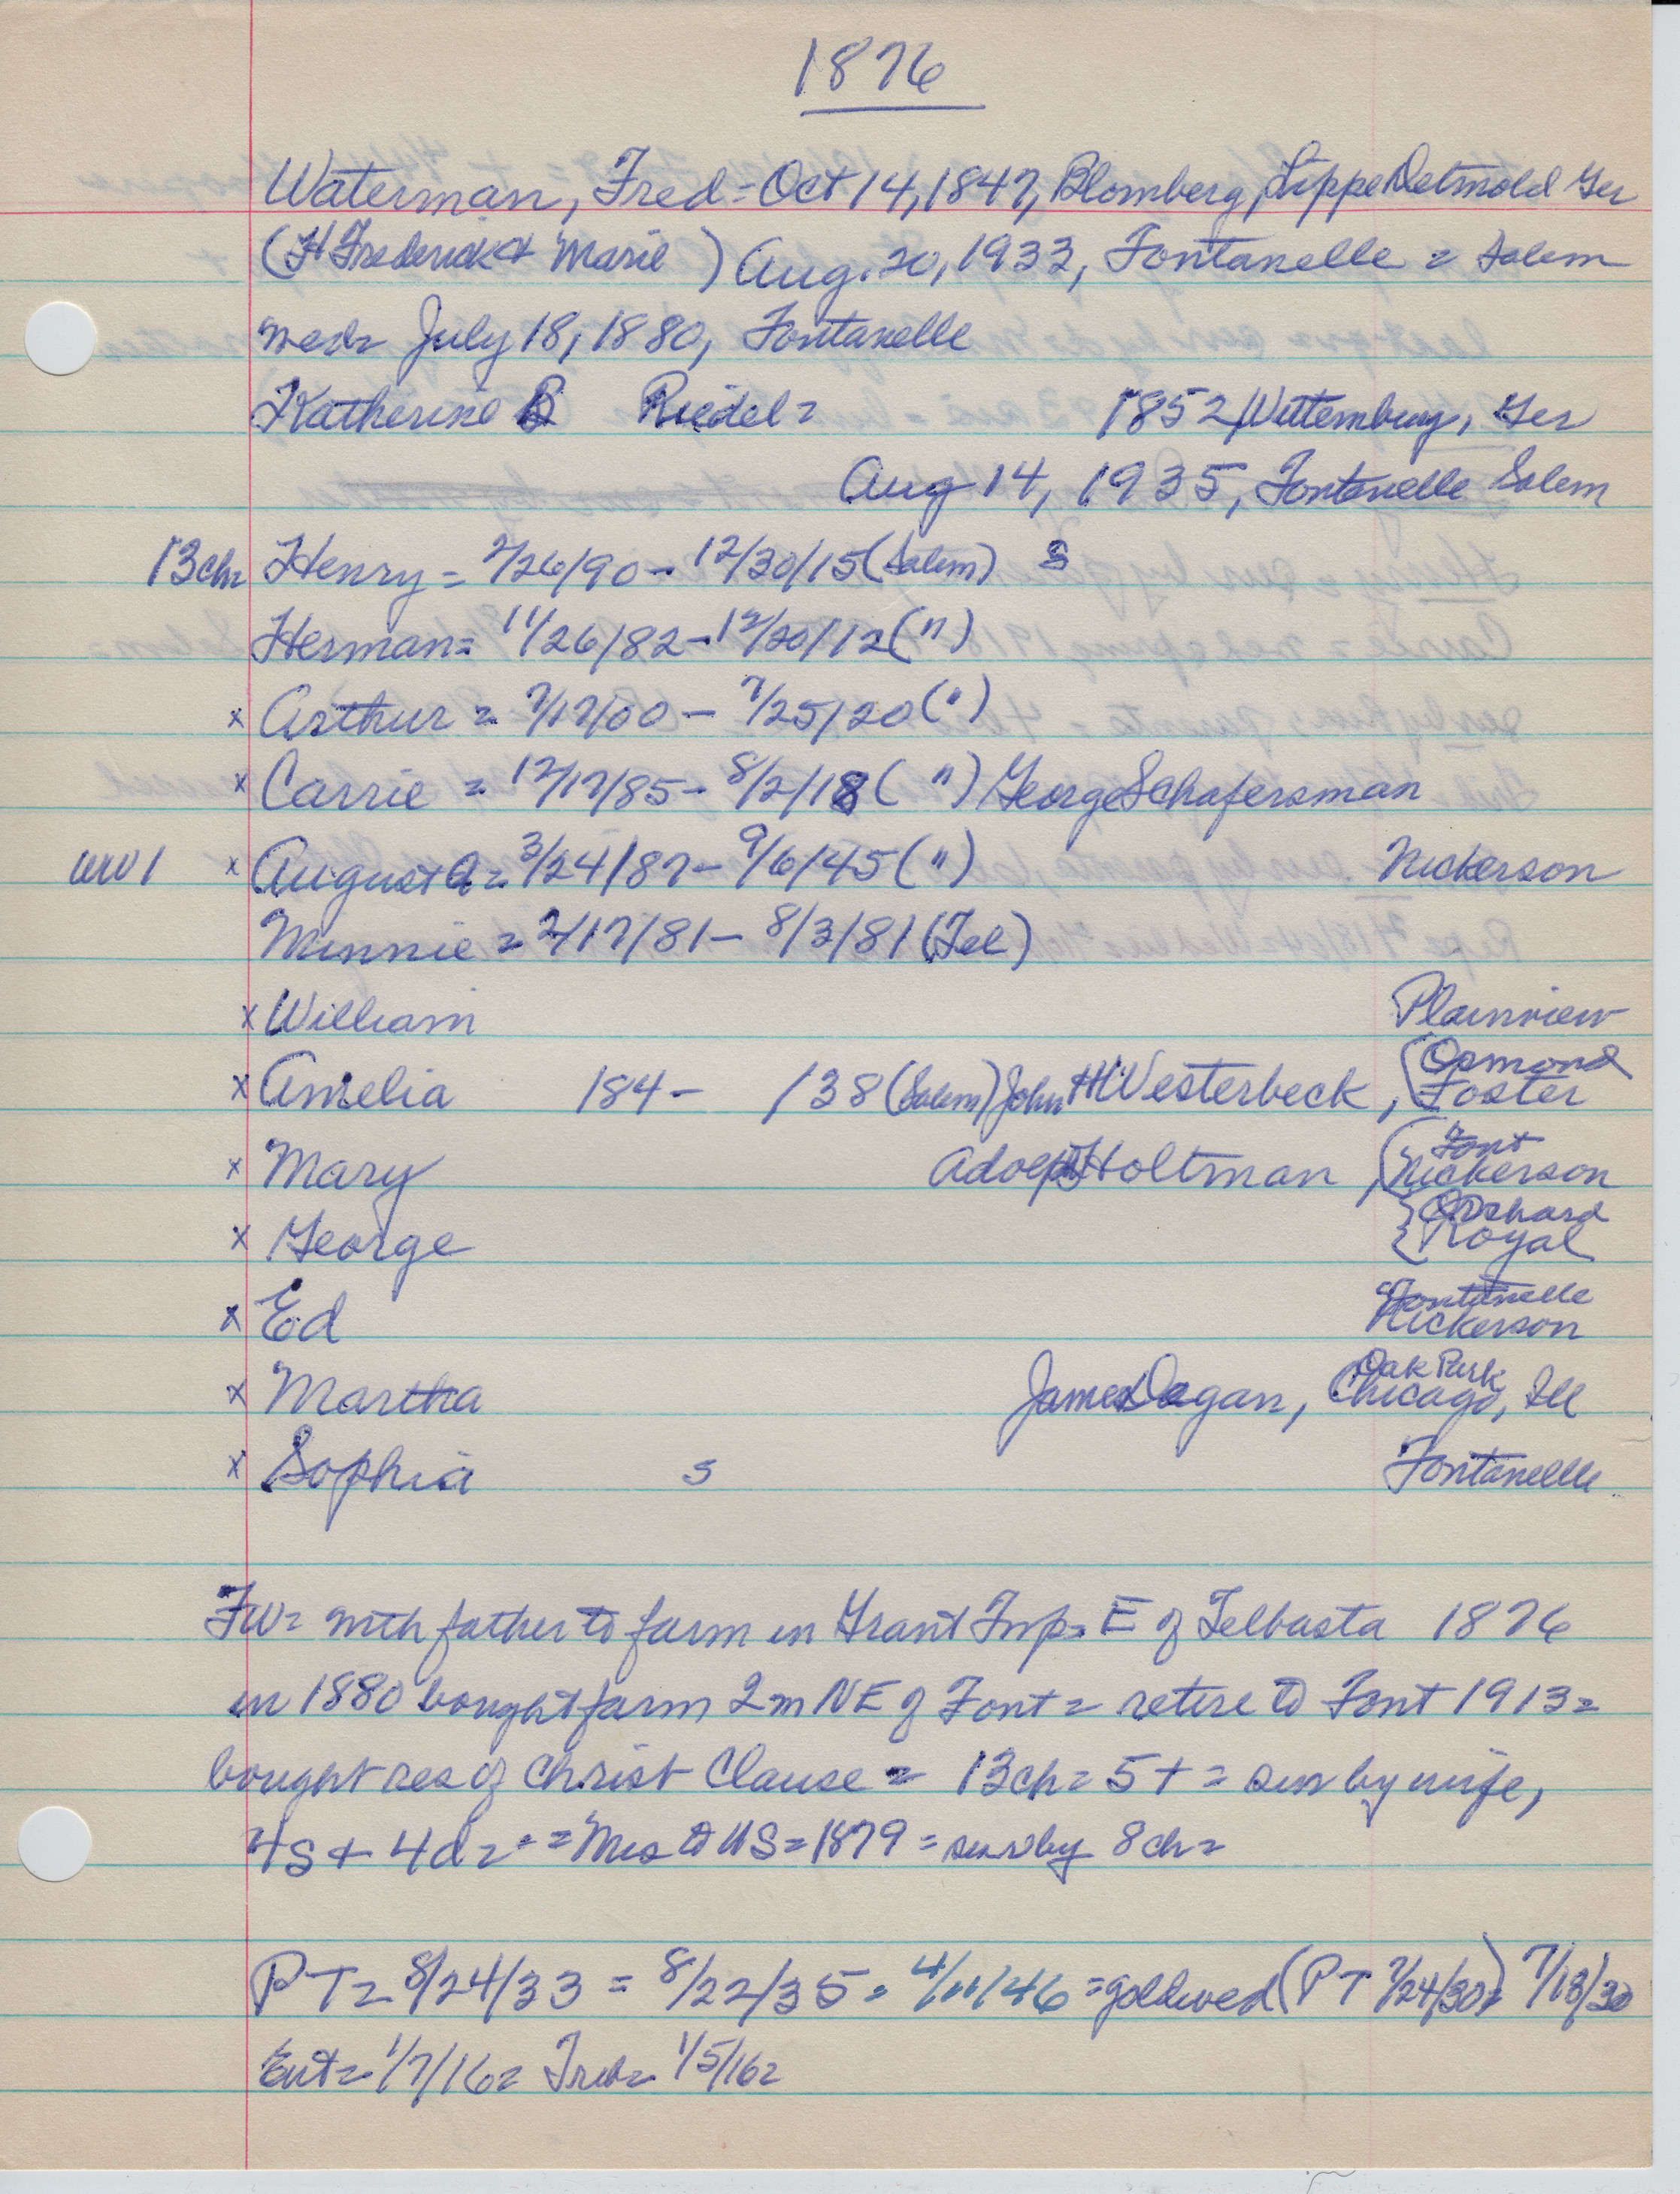 1876
Waterman, Fred = Oct 14, 1847, Blomberg, Lippe Detmold Ger
(H Frederick & Marie) Aug. 20, 1933, Fontanelle = Salem
med= July 18, 1880, Fontanelle
Katherine B Riedel = 1852 Wittemburg, Ger
Aug 14, 1935, Fontanelle Salem
13ch= Henry = 2/26/90 - 12/30/15 (Salem) S
Herman = 11/26/82 - 12/20/12 (")
x Arthur = 7/17/00 - 7/25/20 (")
x Carrie = 12/17/85 - 8/2/18 (") George Schafersman
WW1 x August A = 3/24/87 - 9/6/45 (") Nickerson
Minnie = 2/17/81 - 8/3/81 (Tel)
x William Plainview
x Amelia 184 - /38 (Salem) John H Westerbeck, { Osmond
Foster
x Mary Adolph Holtman, { Font
Nickerson
x George { Orchard
Royal
x Ed Fontanelle
Nickerson
x Martha James Dagan, Oak Park
Chicago, Ill
x Sophia S Fontanelle
FW= with father to farm in Grant Twp= E of Telbasta 1876
in 1880 bought farm 2m NE of Font = retire to Font 1913=
bought res of Christ Clause = 13ch= 5+ = surv by wife,
4s + 4d= = Mrs to US = 1879 = surv by 8ch=
PT= 8/24/33 = 8/22/35 = 4/11/46 = gold wed (PT 7/24/30) 7/18/30
Ent= 1/7/16= Trib= 1/5/16=